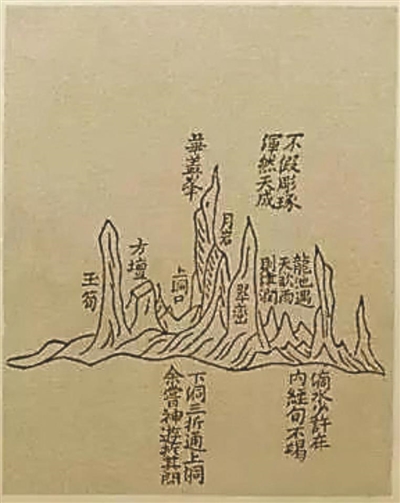 不假彫琢
渾然天成
華蓋峯
月岩
龍池遇
天欲雨
則津潤
翠巒
上洞口
方壇
玉筍
滴水少許在
内経旬不竭
下洞三折通上洞
余嘗神遊於其間